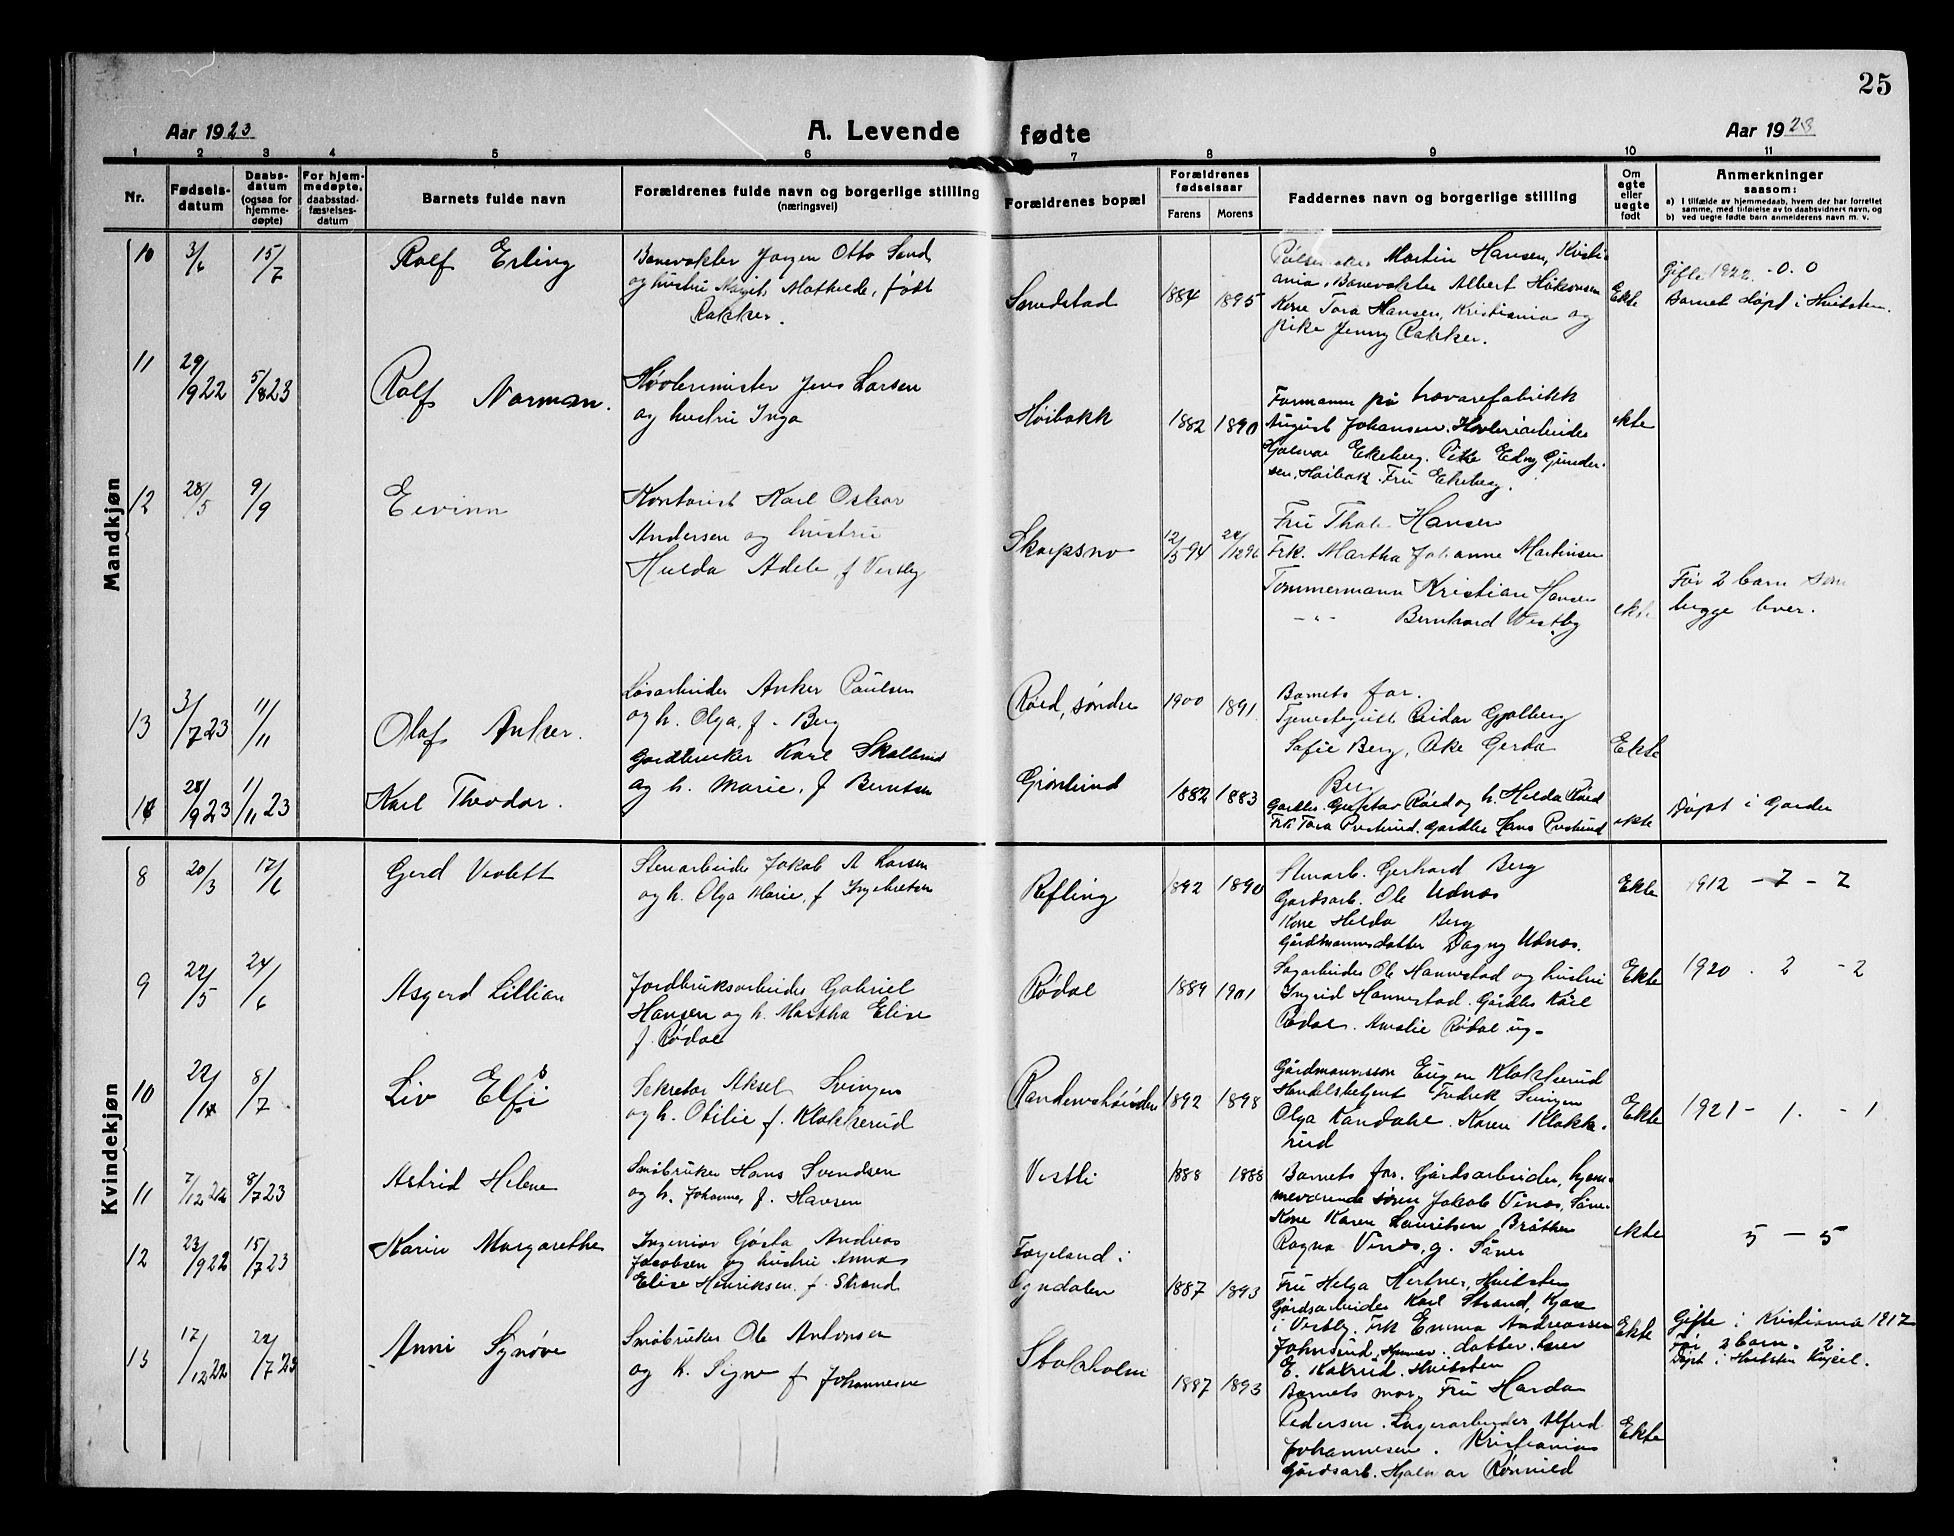 25
Aar 1923
A. Levende fødte
Aar 1923
1 2 3 4 5 6 7 8 9 10 11
Nr.
Fødsels-
datum
Daabs-
datum
(ogsaa for
hjemme-
døpte)
For hjem-
medøpte,
daabsstad-
fæstelses-
datum
Barnets fulde navn
Forældrenes fulde navn og borgerlige stilling
(næringsvei)
Forældrenes bopæl
Forældrenes
fødselsaar
Farens Morens
Faddernes navn og borgerlige stilling
Om
egte
eller
uegte
født
Anmerkninger
saasom:
a) I tilfælde av hjemmedaab, hvem der har forrettet
samme, med tilføielse av to daabsvidners navn, og
b) ved uegte fødte barn anmelderens navn m. v.
Mandkjøn
10 3/6 15/7 Rolf Erling
Banevokter Jørgen Otto Sand
og hustru Margit Mathilde, født
Rakker.
Sandstad 1884 1895
Martin Hansen, Kristi-
ania, Banevokter Albert Håkonsen
Kone Tora Hansen, Kristiania og
pike Jenny Rakker.
Ekte
Gifte 1922 - 0. 0
Barnet døpt i Hvitsten.
11 29/9 22 5/8 23 Rolf Norman.
Høvlerimester Jens Larsen
og hustru Inga
Høibakk 1882 1890
Formann på trævarefabrikk
August Johansen. Høvleriarbeider
Hjalmar Ekeberg. Pike Edny Gunder-
sen, Høibak. Fru Ekeberg.
ekte
12 28/5 9/9 Eivinn
Kontorist Karl Oskar
Andersen og hustru
Hulda Adele, f Vestby
Skarpsno 12/5 94
Fru Thale Hansen
Frk. Martha Johanne Martinsen
Tømmermann Kristian Hansen
-"- Bernhard Westby
ekte
Før 2 barn som
begge lever.
13 3/7 23 11/11 Olaf Anker.
Løsarbeider Anker Paulsen
og h. Olga, f. Berg
Røed, søndre 1900 1891
Barnets far.
Tjenestegutt Reidar Gjølberg
Sofie Berg, Pike Gerda
Berg
Ekte
14 28/9 23 1/11 23 Karl Theodor.
Gardbruker Karl Skallerud
og h. Marie, f Berntsen
Grønlund 1882 1883
Gardbr. Gustav Røed og h. Helda Røed
Frk Tora Prestrud. Gardbr Hans Prestrud
ekte
Døpt i Garder
Kvindekjøn
8 20/3 17/6 Gerd Violett
Stenarbeider Jakob A Larsen
og h. Olga Marie, f Ingebretsen
Refling 1892 1890
Stenarb. Gerhard Berg
Gårdsarb. Ole Udnæs
Kone Helda Berg
Gårdmannsdatter Dagny Udnæs.
Ekte
1912 - 7 - 7
9 22/5 24/6 Asgerd Lillian
Jordbruksarbeider Gabriel
Hansen og h. Martha Elise
f. Rødal
Rødal 1889 1901
Sagarbeider Ole Hannestad og hustru
Ingrid Hannestad. Gårdbr Karl
Rødal. Amalie Rødal ug-
Ekte
1920. 2 - 2
10 22/ 8/7 Liv Elfi
Sekretær Aksel Svingen
og h. Otilie f. Klokkerud
1892 1898
Gårdmannssøn Eugen Klokkerud
Handelsbetjent Fredrik Svingen
Olga Randahl. Karen Klokke-
rud
Ekte
1921 - 1. - 1
11 7/12 22 8/7 23 Astrid Helene
Småbruker Hans Svendsen
og h. Johanne, f. Hansen
Vestli 1888 1888
Barnets far. Gårdsarbeider, hjem-
meværende søn Jakob Vinæs, Såne.
Kone Karen Lauritsen Bråthen
Ragna Vinæs, g. Såner
ekte
5 - 5
12 23/9 22 15/7 23 Karin Margarethe
Ingeniør Gösta Andreas
Jacobsen og hustru Anna
Elise Henriksen f. Strand
Fageland i
Ogndalen 1887 1893
Fru Helga Hertner, Hvitsten
Gårdsarbeider Karl Strand, Kjær
i Vestby. Frk Emma Andreassen
E. Hvitsten
Ekte
Gifte i Kristiania 1917
Før 2 barn. 2
Døpt i Hvitsten Kapel.
13 17/12 22 22/7 23 Anni Synøve
Småbruker Ole Antonsen
og h. Signe f Johannesen
Stokholm 1887 1893
Barnets mor, Fru Harda
Pedersen. Lagerarbeider Alfred
Johannesen. Kristiania
Gårdsarb. Hjalmar Rønnild
Ekte